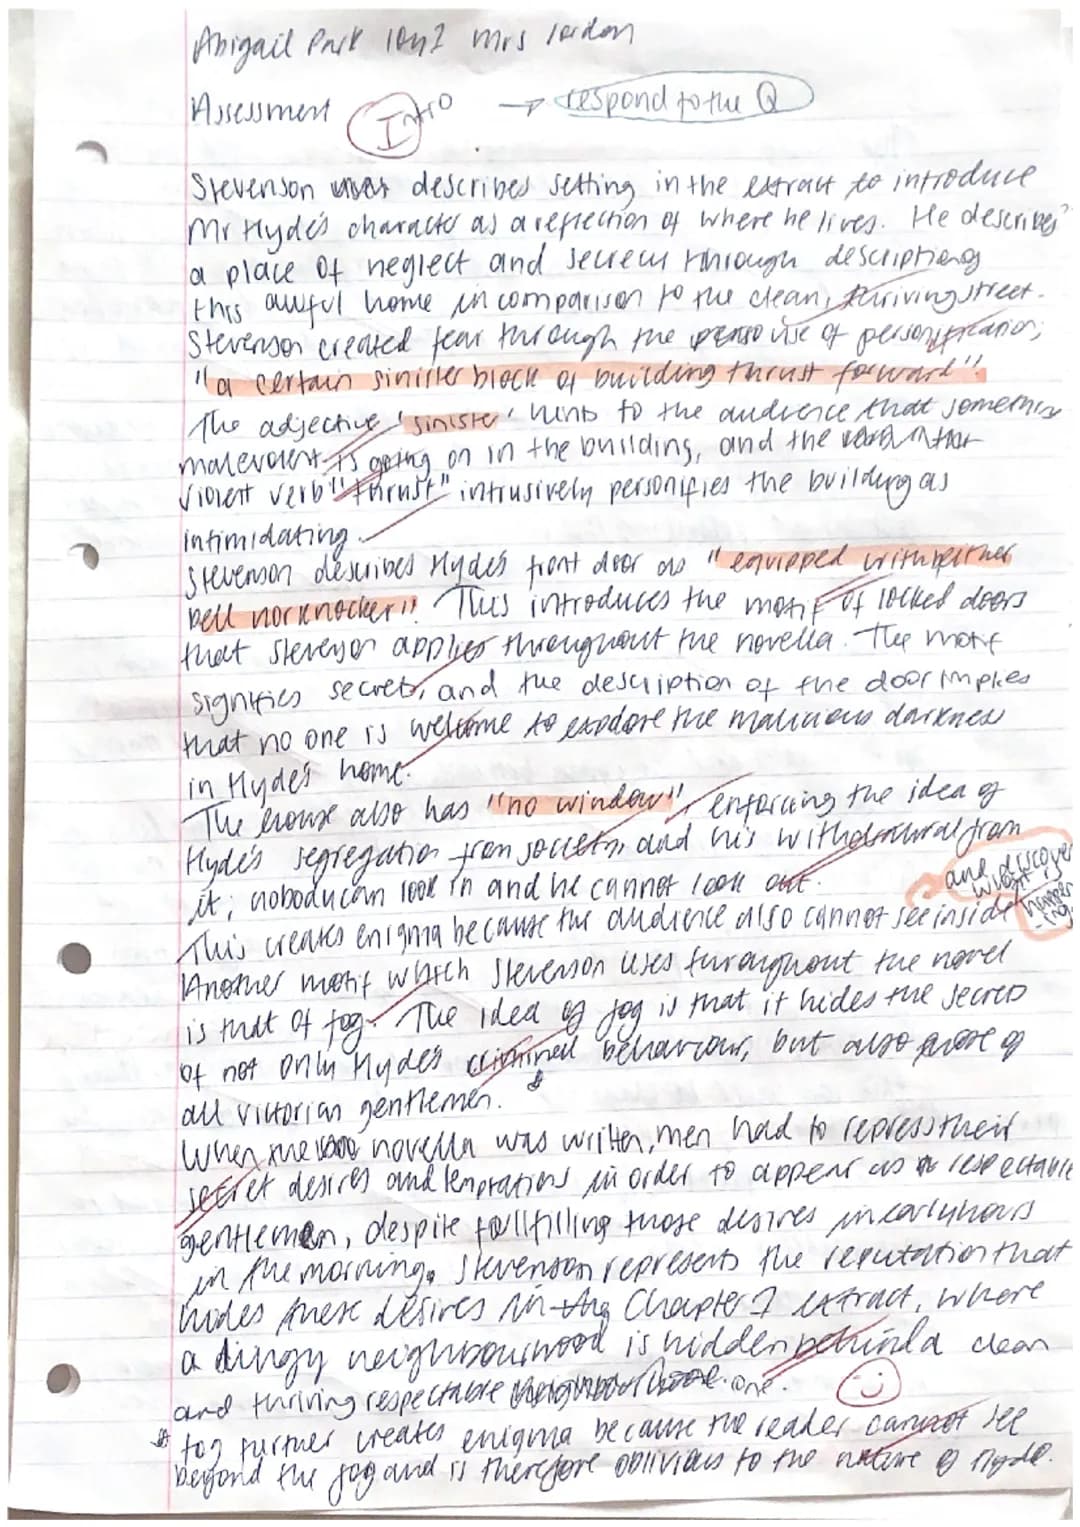 Abigail Park 10y1 Mrs Jordan
Assessment Intro → respond to the Q
Stevenson describes setting in the extract to introduce
Mr Hyde's character as a reflection of where he lives. He describes
a place of neglect and secrecy through description of
this awful home in comparison to the clean, thriving street.
Stevenson created fear through the use of personification;
"a certain sinister block of building thrust forward".
The adjective 'sinister' hints to the audience that something
malevolent is going on in the building, and the
violent verb "thrust" intrusively personifies the building as
intimidating.
Stevenson describes Hyde's front door as "equipped with neither
bell nor knocker". This introduces the motif of locked doors
that Stevenson applies throughout the novella. The motif
signifies secrets, and the description of the door implies
that no one is welcome to explore the malicious darkness
in Hyde's home.
The house also has "no window", enforcing the idea of
Hyde's segregation from society, and his withdrawal from
it; nobody can look in and he cannot look out.
and discover what is happening
This creates enigma because the audience also cannot see inside
Another motif which Stevenson uses throughout the novel
is that of fog. The idea of fog is that it hides the secrets
of not only Hyde's criminal behaviour, but also of
all victorian gentlemen.
When the novella was written, men had to repress their
secret desires and temptations in order to appear as respectable
gentlemen, despite fullfilling those desires in early hours
in the morning. Stevenson represents the reputation that
hides these desires in the Chapter 1 extract, where
a dingy neighbourhood is hidden behind a clean
and thriving respectable one.
fog further creates enigma because the reader cannot see
beyond the fog and is therefore oblivious to the nature of Hyde.